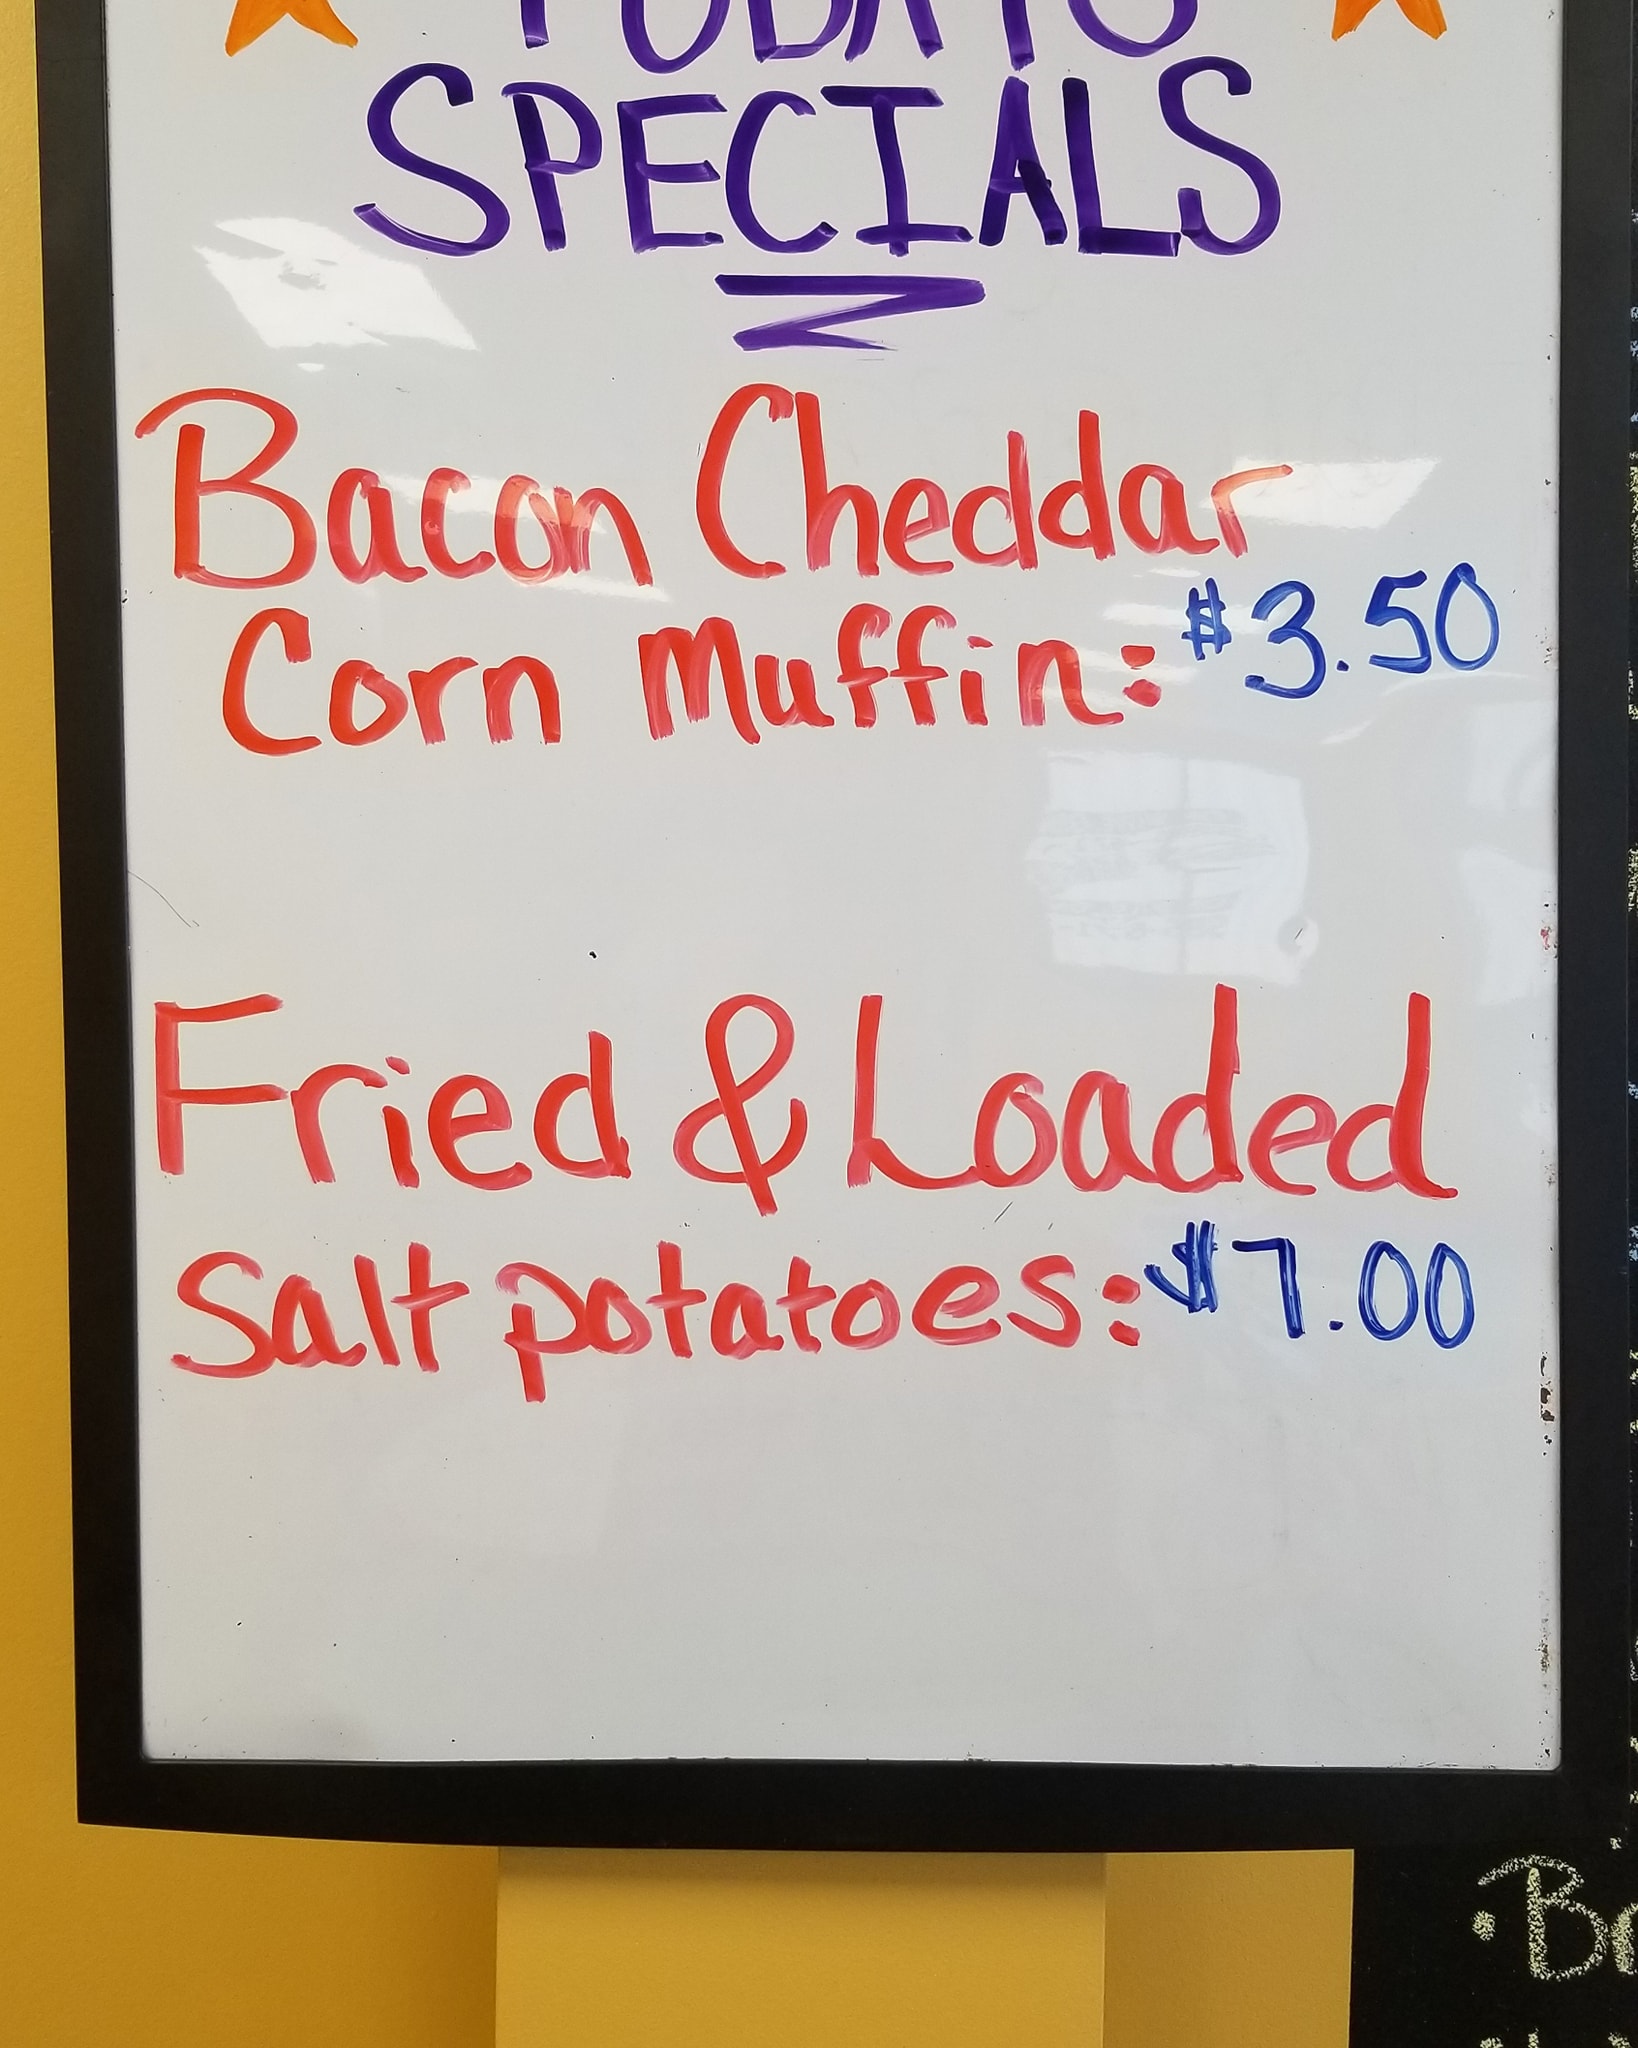 TODAYS
SPECIALS
Bacon Cheddar
Corn Muffin: $3.50
Fried & Loaded
Salt potatoes: $7.00